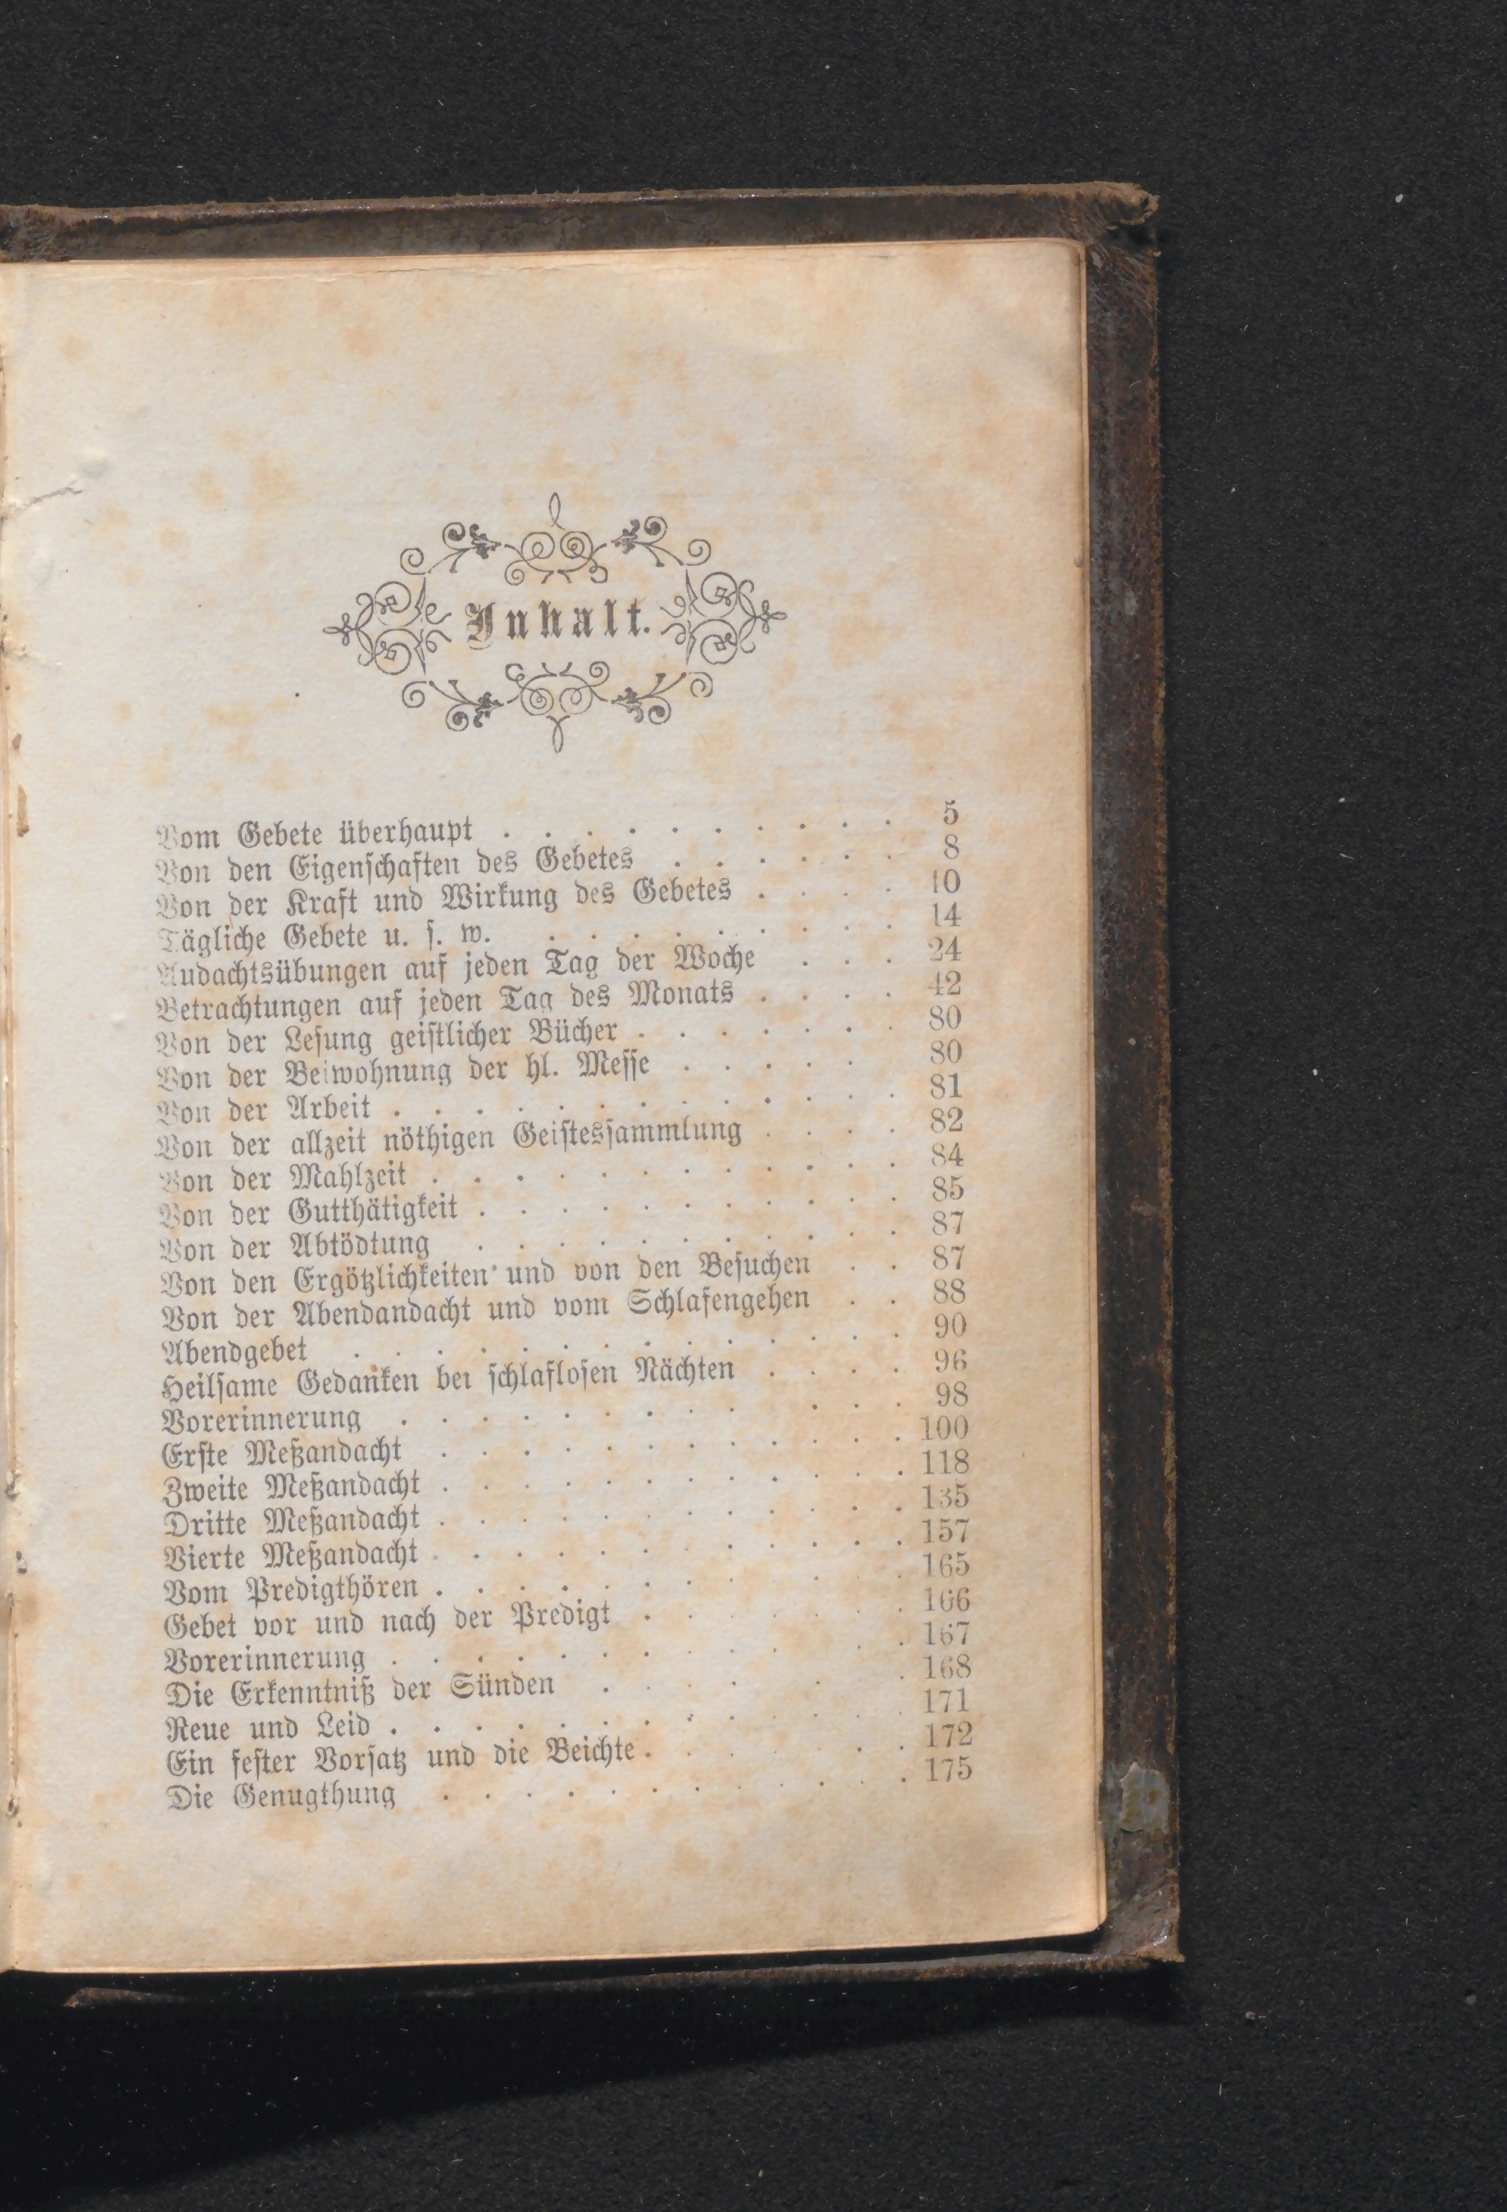 Inhalt.
Vom Gebete überhaupt . . . . . . . . . . 5
Von den Eigenschaften des Gebetes . . . . . . 8
Von der Kraft und Wirkung des Gebetes . . . . 10
Tägliche Gebete u. s. w. . . . . . . . . . 14
Audachtsübungen auf jeden Tag der Woche . . . 24
Betrachtungen auf jeden Tag des Monats . . . . 42
Von der Lesung geistlicher Bücher . . . . . . . 80
Von der Beiwohnung der hl. Messe . . . . . 80
Von der Arbeit . . . . . . . . . . . . . 81
Von der allzeit nöthigen Geistessammlung . . . . 82
Von der Mahlzeit . . . . . . . . . . . . 84
Von der Gutthätigkeit . . . . . . . . . . . 85
Von der Abtödtung . . . . . . . . . . . 87
Von den Ergötzlichkeiten und von den Besuchen . . 87
Von der Abendandacht und vom Schlafengehen . . 88
Abendgebet . . . . . . . . . . . . . . 90
Heilsame Gedanken bei schlaflosen Nächten . . . . 96
Vorerinnerung . . . . . . . . . . . . 98
Erste Meßandacht . . . . . . . . . . . . 100
Zweite Meßandacht . . . . . . . . . . . . 118
Dritte Meßandacht . . . . . . . . . . . . 135
Vierte Meßandacht . . . . . . . . . . . . 157
Vom Predigthören . . . . . . . . . . . . 165
Gebet vor und nach der Predigt . . . . . . . 166
Vorerinnerung . . . . . . . . . . . . 167
Die Erkenntniß der Sünden . . . . . . 168
Reue und Leid . . . . . . . . . . . . . 171
Ein fester Vorsatz und die Beichte . . . . . . . 172
Die Genugthung . . . . . . . . . . . . 175